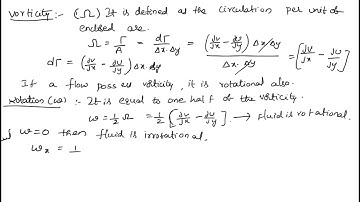 Vorticity :- (Ω) It is defined as the circulation per unit of
enclosed are.
Ω = Γ/A = dΓ/Δx·Δy = (∂v/∂x - ∂u/∂y) Δx·Δy / Δx·Δy = [∂v/∂x - ∂u/∂y]
dΓ = (∂v/∂x - ∂u/∂y) Δx·Δy
If a flow possess vorticity, it is rotational also.
Rotation (ω) :- It is equal to one half of the vorticity.
ω = 1/2 Ω = 1/2 [∂v/∂x - ∂u/∂y] → fluid is rotational.
if ω=0 then fluid is irrotational.
ωx = 1